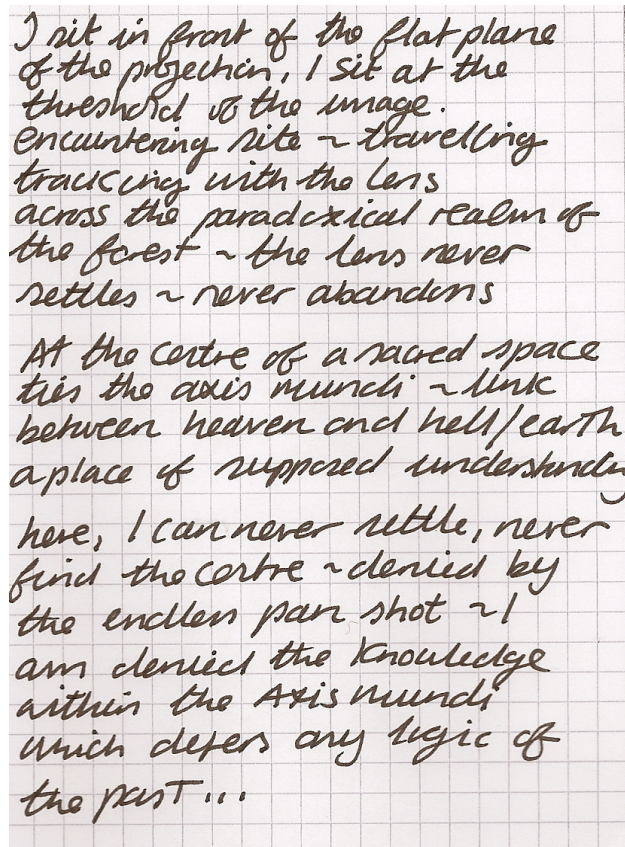 I sit in front of the flat plane
of the projection, I sit at the
threshold of the image.
encountering site ~ travelling
tracking with the lens
across the paradoxical realm of
the forest ~ the lens never
settles ~ never abandons
At the centre of a sacred space
ties the axis mundi ~ link
between heaven and hell/earth
a place of supposed understandin
here, I can never settle, never
find the centre ~ denied by
the endless pan shot ~ I
am denied the knowledge
within the Axis mundi
which defers any logic of
the past...